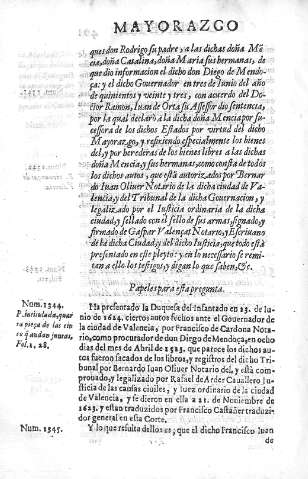 MAYORAZGO
ques don Rodrigo su padre, y a las dichas doña Mẽ
cia, doña Catalina, doña Maria sus hermanas, de
que dio informacion el dicho don Diego de Mendo-
ça; y el dicho Governador en tres de Iunio del año
de quinientos y veinte y tres, con acuerdo del Do-
ctor Ramon, Iuan de Orta su Assessor dio sentencia,
por la qual declarò a la dicha doña Mencia por su-
cessora de los dichos Estados por virtud del dicho
Mayorazgo, y especialmente los bienes
del, y por herederas de los bienes libres a las dichas
doña Mencia, y sus hermanas, como consta de todos
los dichos autos, que està autorizados por Bernar-
do Iuan Oliver Notario de la dicha ciudad de Va-
lencia, y del Tribunal de la dicha Governacion, y
legalizado por el Iusticia ordinaria de la dicha
ciudad, y sellado con el sello de sus armas, signado, y
firmado de Gaspar Valençat Notario, y Escrivano
de la dicha Ciudad, y del dicho Iusticia, que todo està
presentado en este pleyto; y en lo necessario se remi-
tan a ello los testigos, y digan lo que saben, &c.
Papeles para esta pregunta.
Num. 1344.
P. intitulada, quar
ta pieça de las cin
co q̃ andan juntas,
Fol. 1, 28,
Ha presentado la Duquesa del Infantado en 23. de Iu-
nio de 1624. ciertos autos fechos ante el Governador de
la ciudad de Valencia, por Francisco de Cardona Nota-
rio, como procurador de don Diego de Mendoça, en ocho
dias del mes de Abril de 1523. que parece los dichos au-
tos fueron sacados de los libros, y registros del dicho Tri-
bunal por Bernardo Iuan Oliver Notario del, y està com-
probado, y legalizado por Rafael de Arder Cavallero Ius-
ticia de las causas civiles, y juez ordinario de la ciudad
de Valencia, y se dieron en ella a 21. de Noviembre de
1623. y estan traduzidos por Francisco Castañer traduzi-
dor general en esta Corte.
Num. 1345.
Y lo que resulta dellos es; que el dicho Francisco Iuan
de